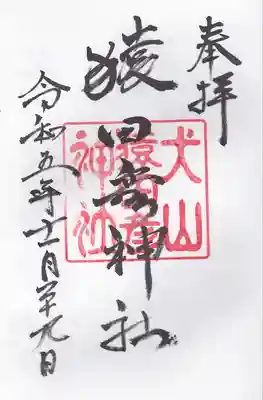 奉拝
猿田彦神社
令和五年十一月二十九日
犬山
猿田彦
神社